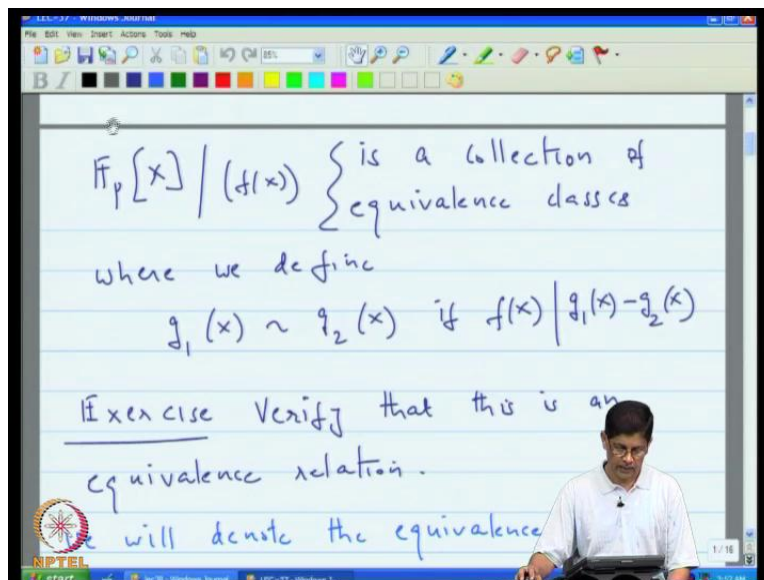 LEC-37 - Windows Journal
File Edit View Insert Actions Tools Help
85%
B I
𝔽_p[x] | (f(x)) { is a collection of
equivalence classes
where we define
g_1(x) ~ g_2(x) if f(x) | g_1(x) - g_2(x)
Exercise Verify that this is an
equivalence relation.
will denote the equivalence
NPTEL
1/16
start